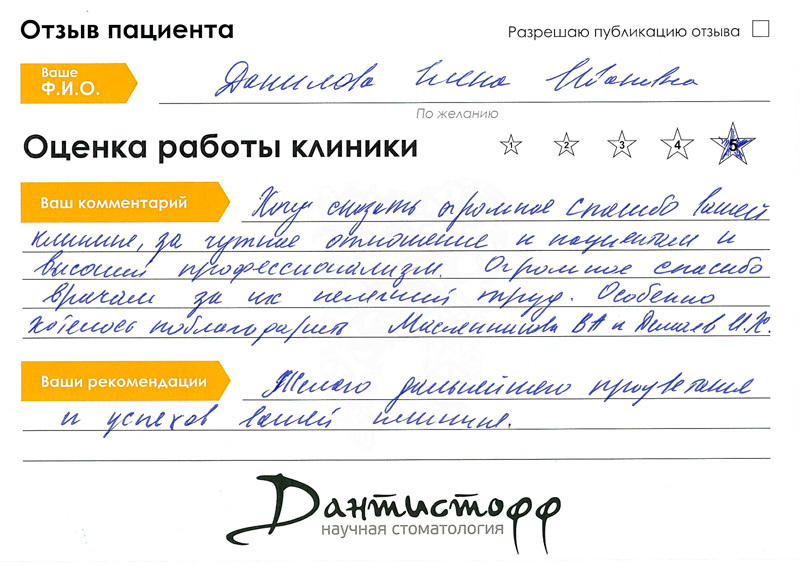 Отзыв пациента
Разрешаю публикацию отзыва
Ваше
Ф.И.О.
Данилова Елена Ивановна
По желанию
Оценка работы клиники
1 2 3 4 5
Ваш комментарий
Хочу сказать огромное спасибо вашей
клинике, за чуткое отношение к пациентам и
высокий профессионализм. Огромное спасибо
врачам за их нелегкий труд. Особенно
хотелось поблагодарить Масленникова ВА и И.Х.
Ваши рекомендации
Желаю дальнейшего процветания
и успехов вашей клинике.
Дантистофф
научная стоматология